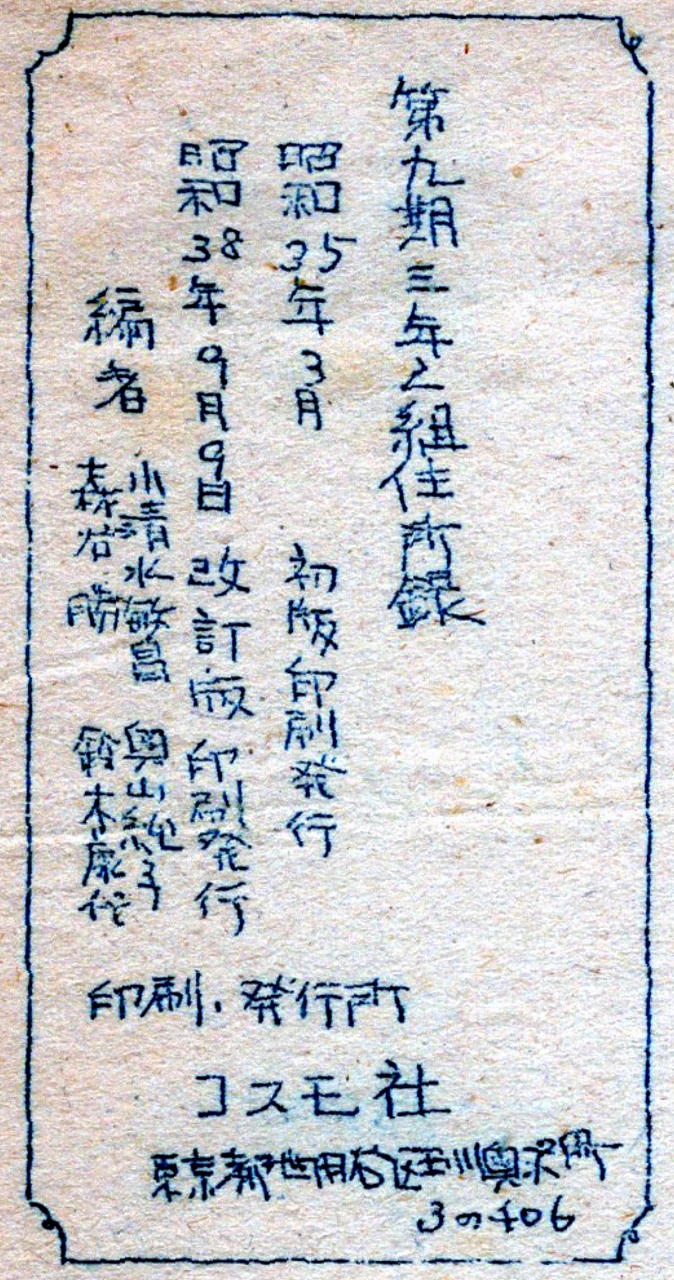 第九期三年2組住所録
昭和35年3月 初版印刷発行
昭和38年9月9日 改訂版印刷発行
編者 小清水敏昌 奥山純子
森谷勝 鈴木康代
印刷、発行所
コスモ社
東京都世田谷区玉川奥沢町
3の406